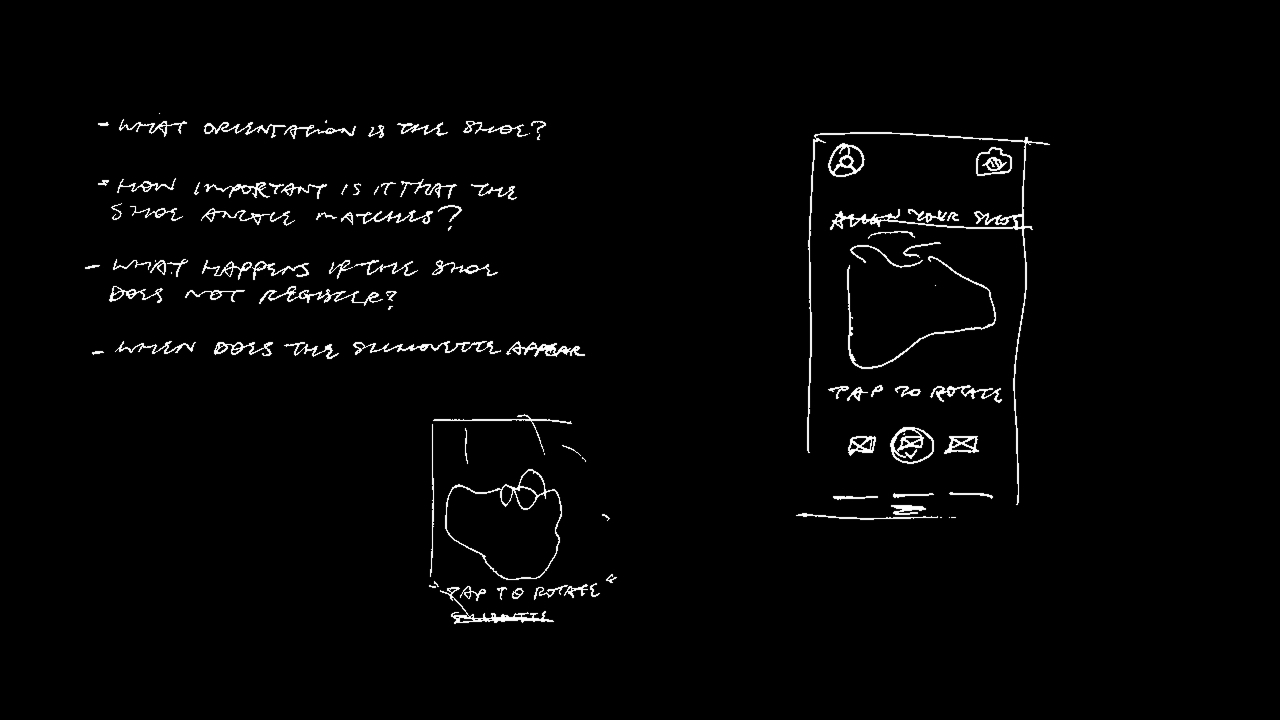 - WHAT ORIENTATION IS THE SHOE?
- HOW IMPORTANT IS IT THAT THE
SHOE ANGLE MATCHES?
- WHAT HAPPENS IF THE SHOE
DOES NOT REGISTER?
- WHEN DOES THE SILHOUETTE APPEAR
ALIGN YOUR SHOE
TAP TO ROTATE
"TAP TO ROTATE"
SILHOUETTE